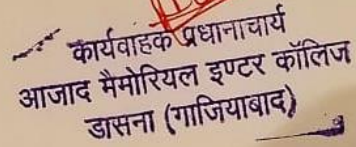 कार्यवाहक प्रधानाचार्य
आजाद मैमोरियल इण्टर कॉलिज
डासना (गाजियाबाद)